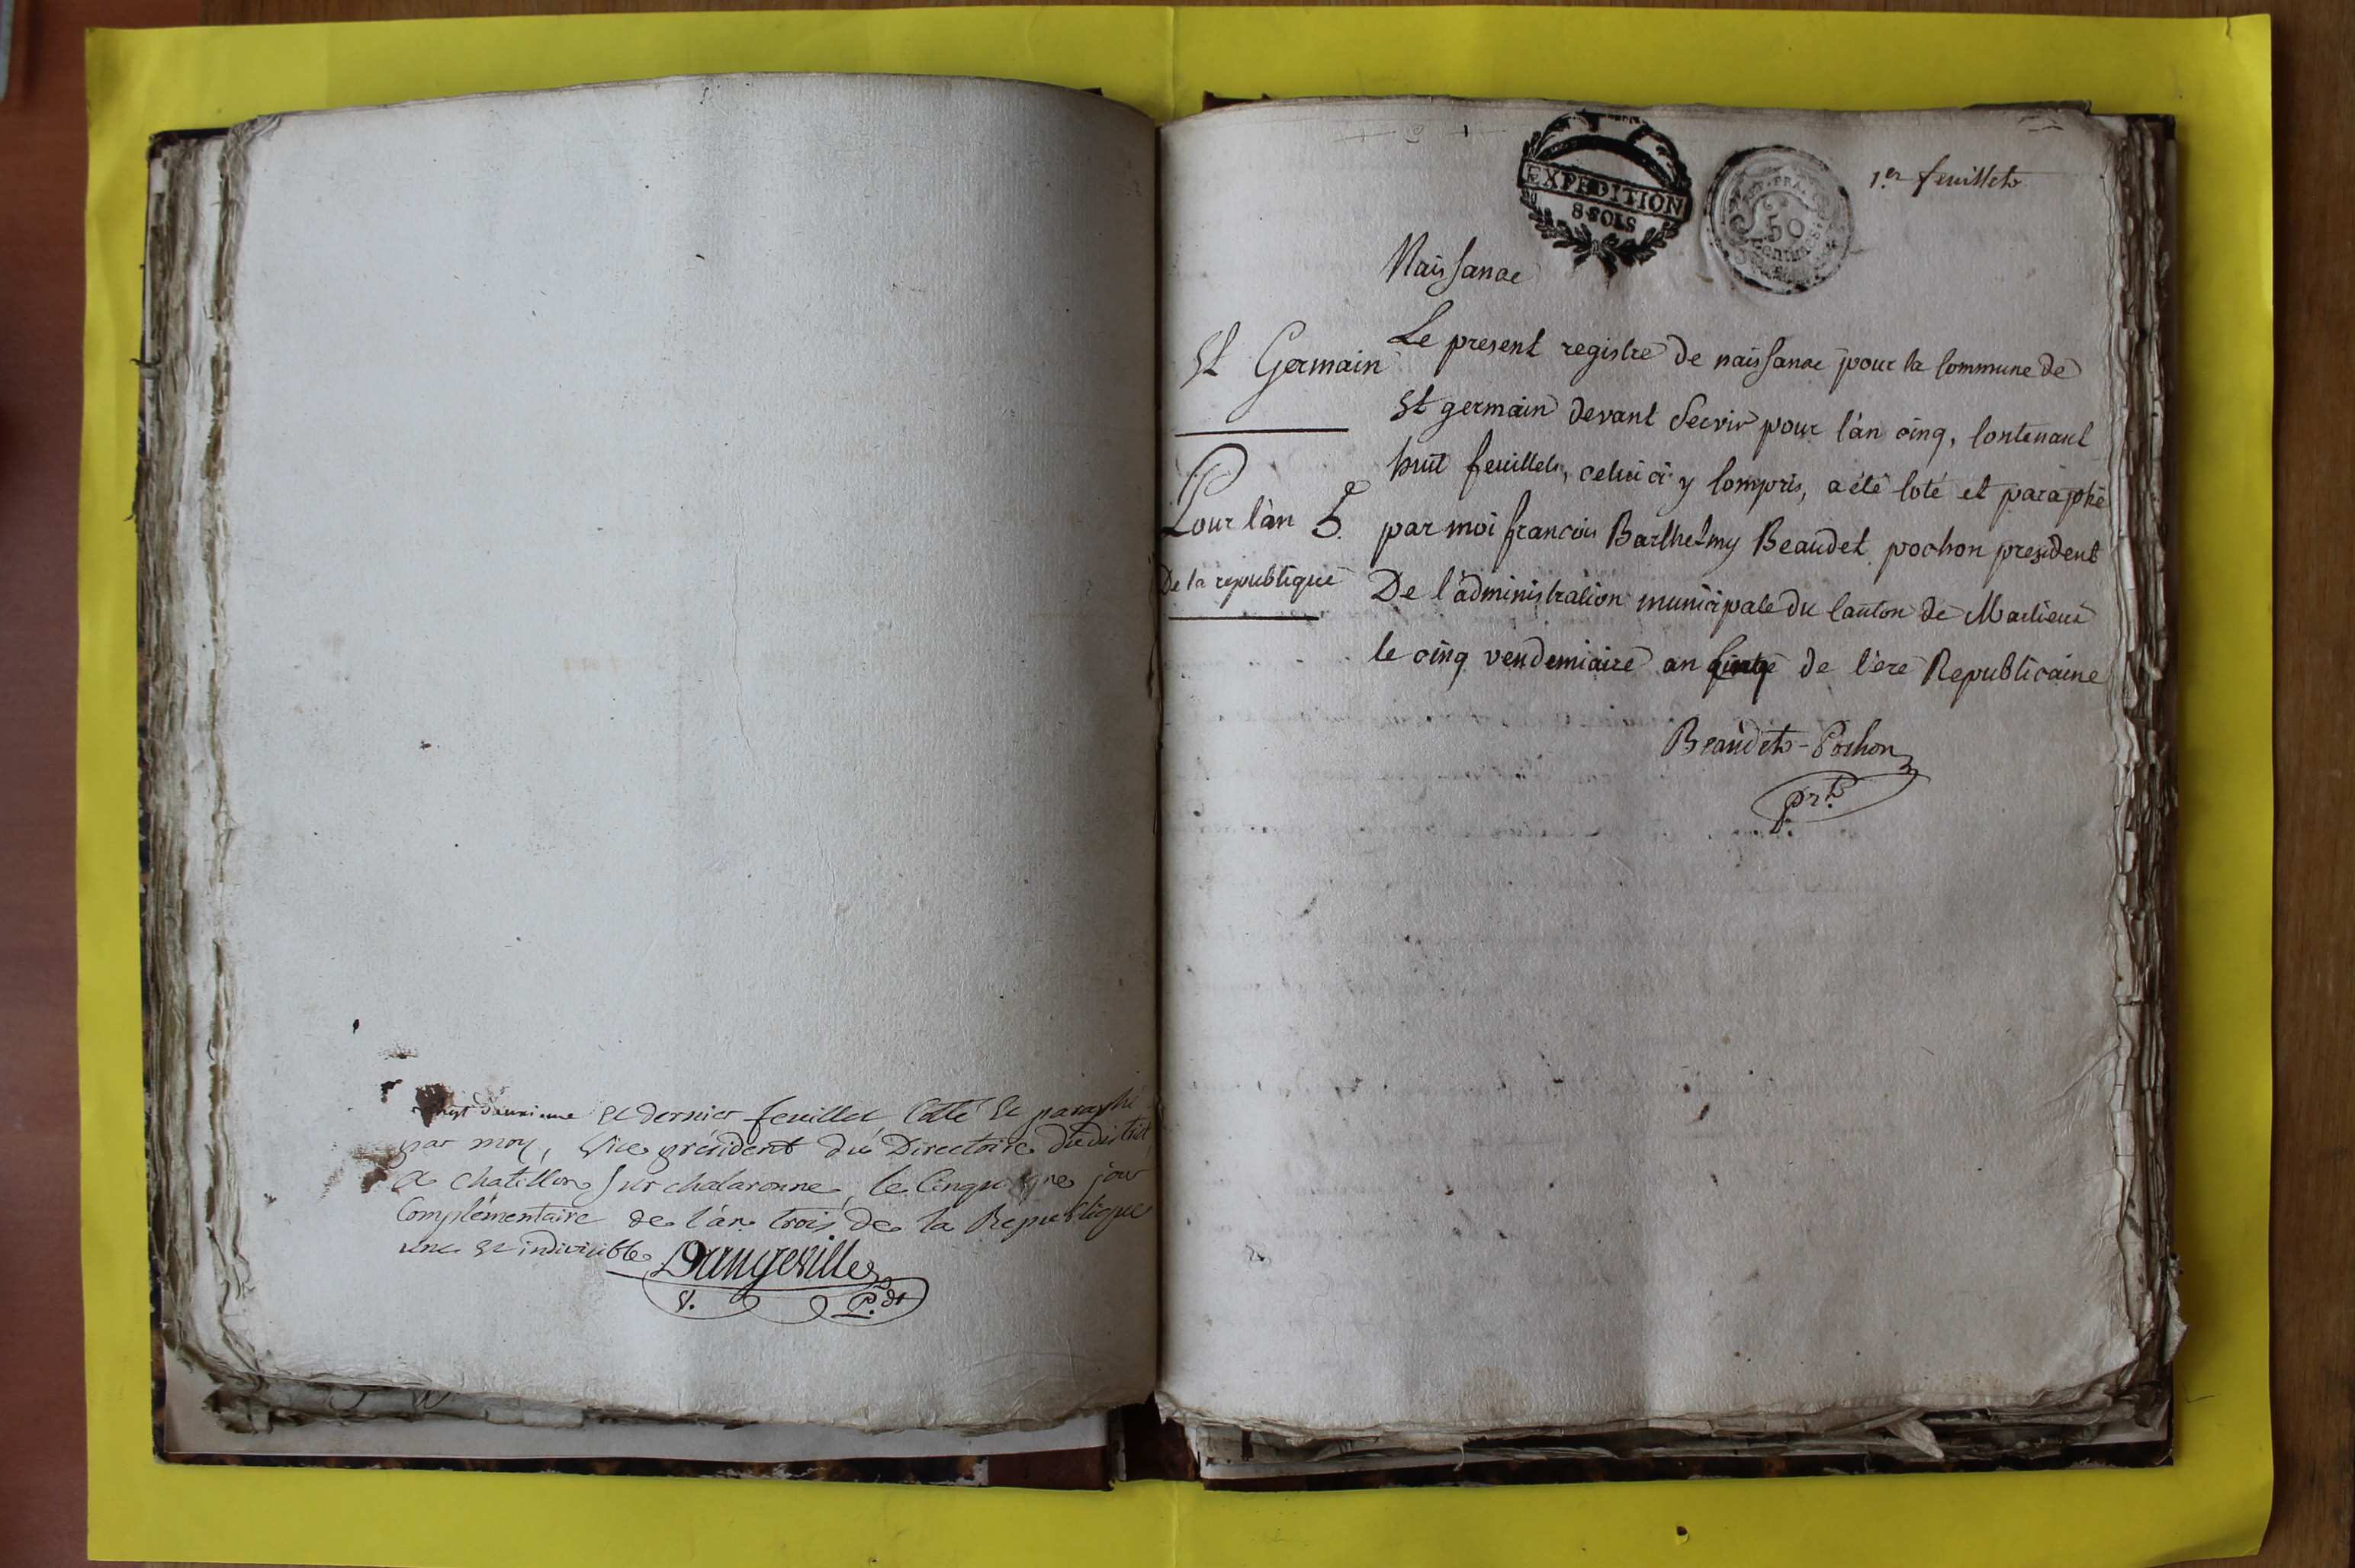 vingt deuxieme et dernier feuillet Cotté et paraphé
par moy, Vice président du Directoire du district
de chatillon sur chalaronne, le Cinquieme jour
Complémentaire de l'an trois de la Republique
une et indivisible Dangeville
V. P.dt
1.er feuillet
EXPEDITION
8 SOLS
REP. FRA
50
Centimes
Naissance
St Germain
Pour l'an 5.e
De la republique
Le present registre de naissance pour la Commune de
St germain devant Servir pour l'an cinq, Contenant
huit feuillets, celui ci y Compris, a été Coté et paraphé
par moi francois Barthelmy Beaudet pochon president
De l'administration municipale du Canton de Marlieux
le cinq vendemiaire an cinq de l'ere Republicaine
Beaudet-Pochon
pr.t